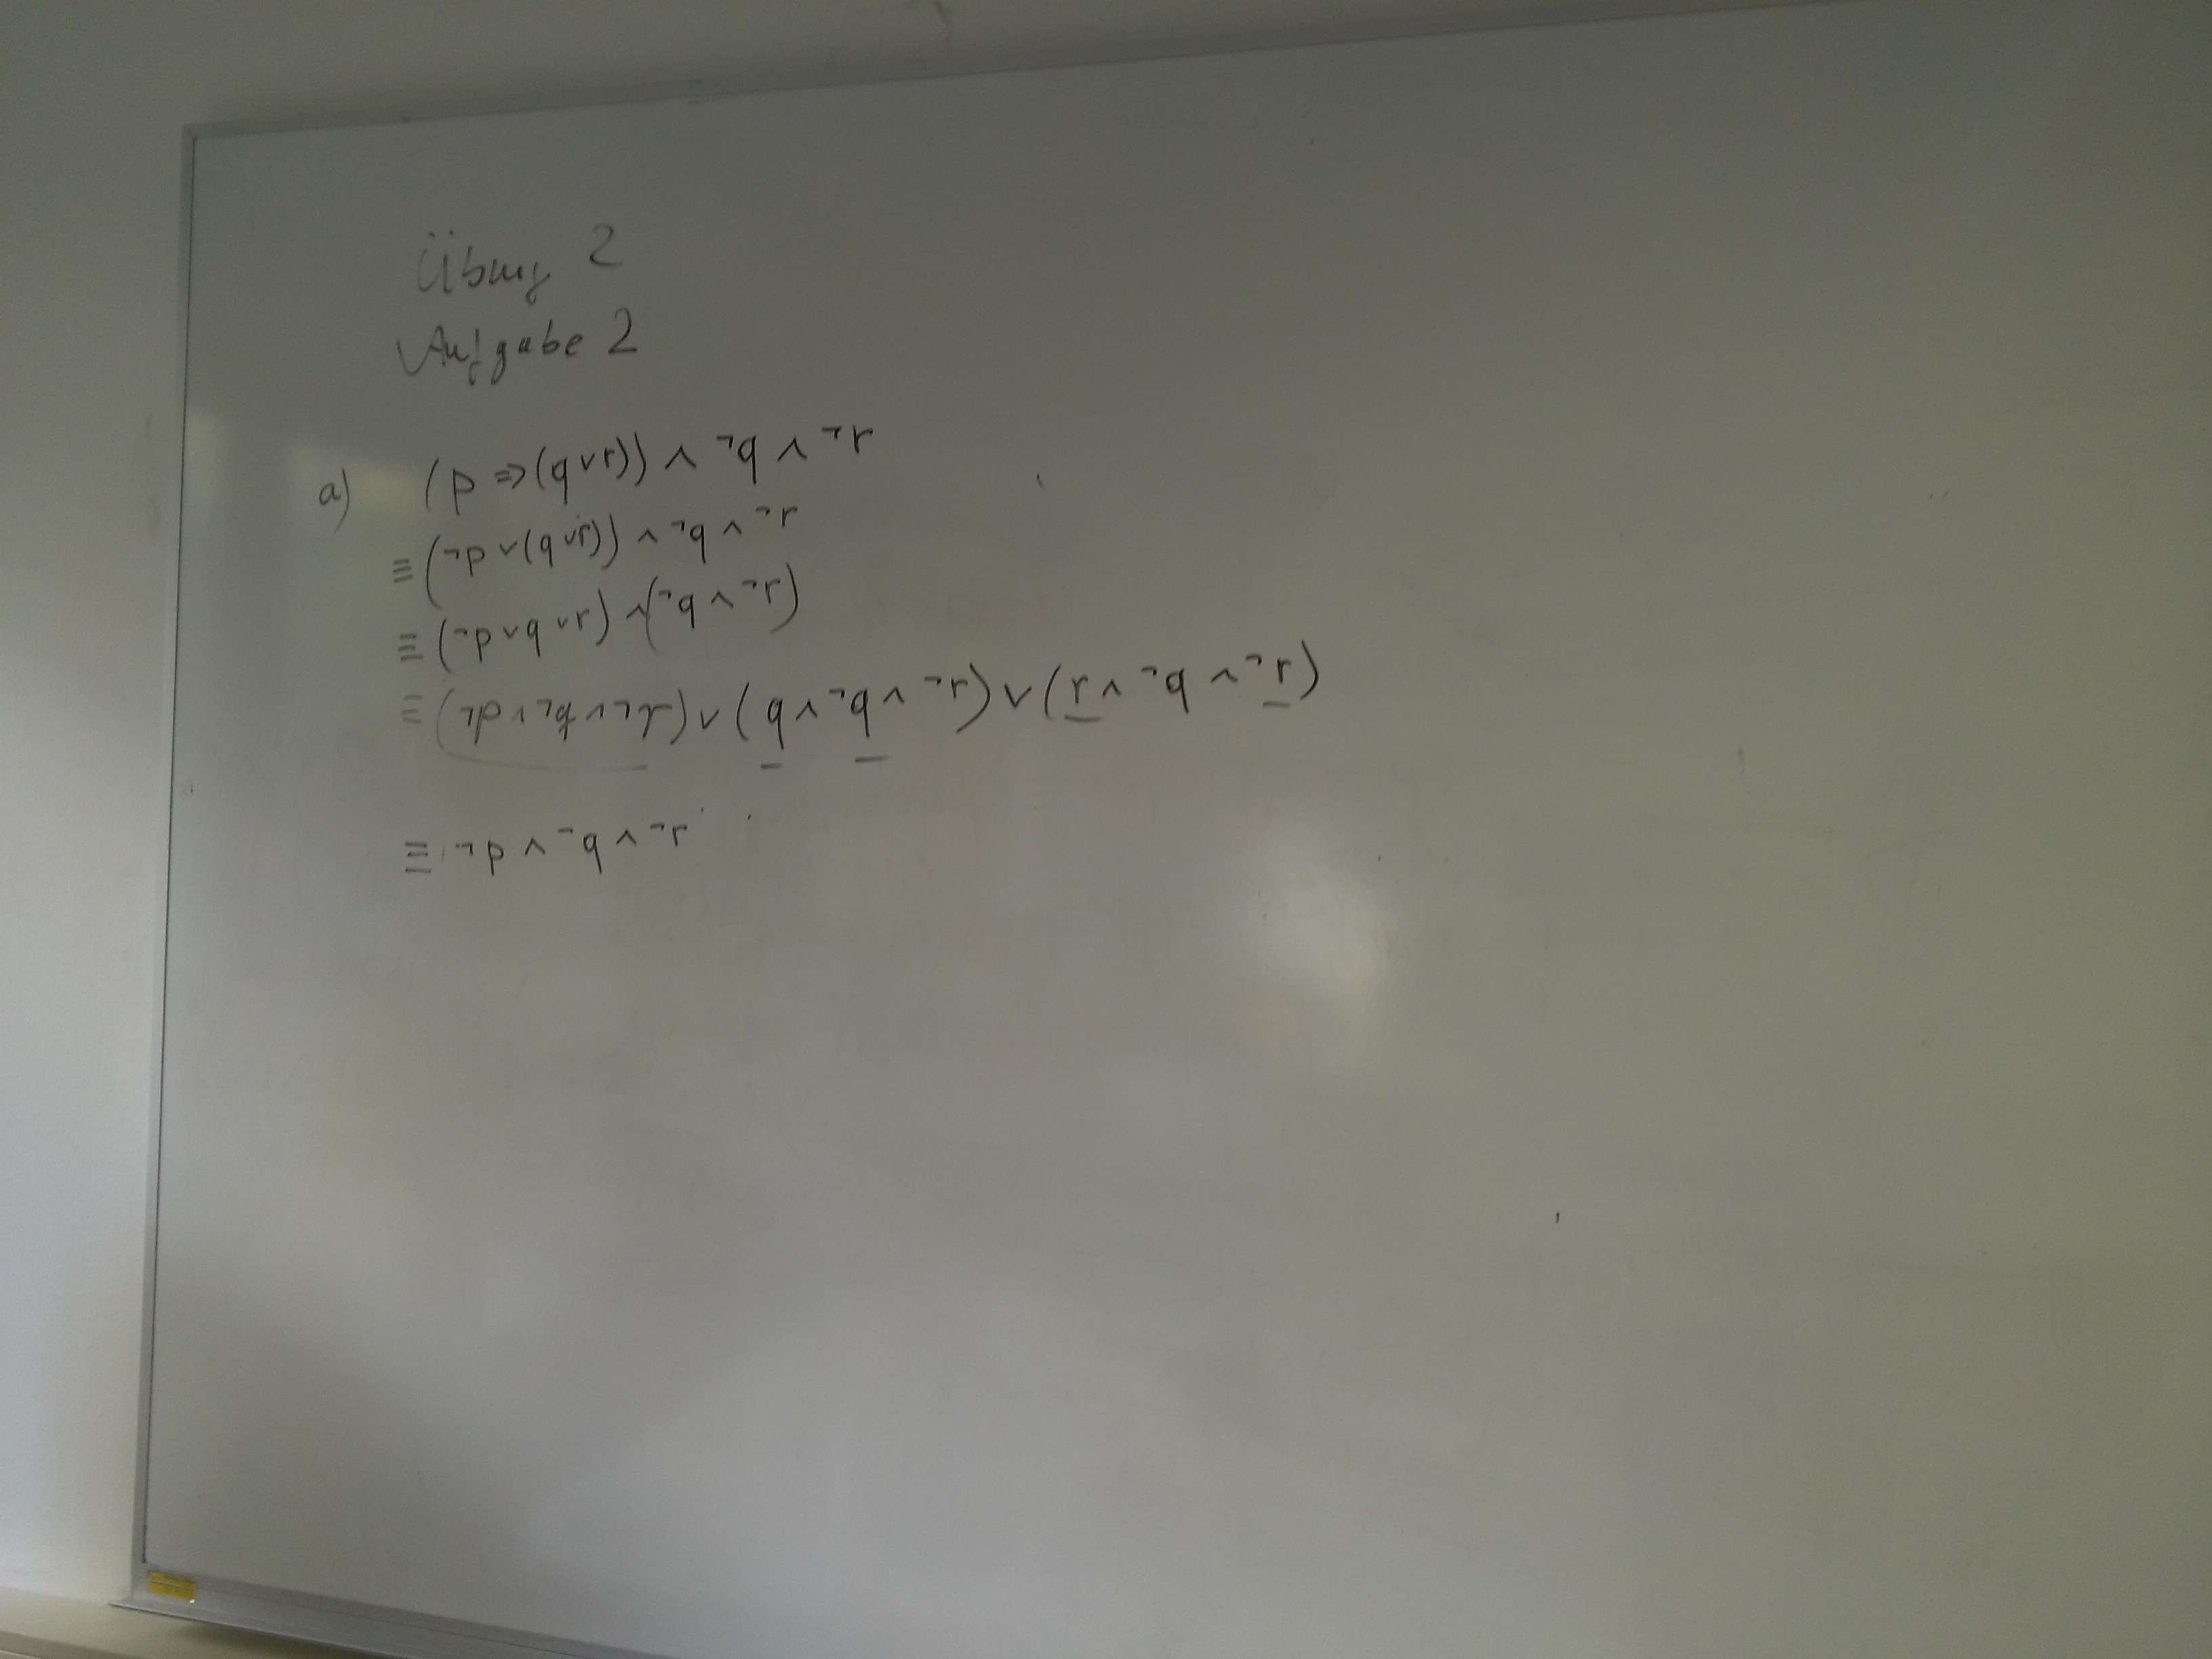 Übung 2
Aufgabe 2
a) (p ⇒ (q ∨ r)) ∧ ¬q ∧ ¬r
≡ (¬p ∨ (q ∨ r)) ∧ ¬q ∧ ¬r
≡ (¬p ∨ q ∨ r) ∧ (¬q ∧ ¬r)
≡ (¬p ∧ ¬q ∧ ¬r) ∨ (q ∧ ¬q ∧ ¬r) ∨ (r ∧ ¬q ∧ ¬r)
≡ ¬p ∧ ¬q ∧ ¬r